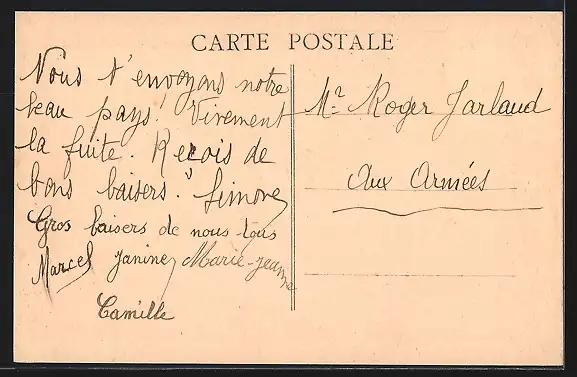 CARTE POSTALE
Nous t'envoyons notre
beau pays! Vivement
la fuite. Reçois de
bons baisers." Simone
Gros baisers de nous tous
Marcel Janine, Marie-Jeanne
Camille
Mr Roger Jarlaud
Aux Armées